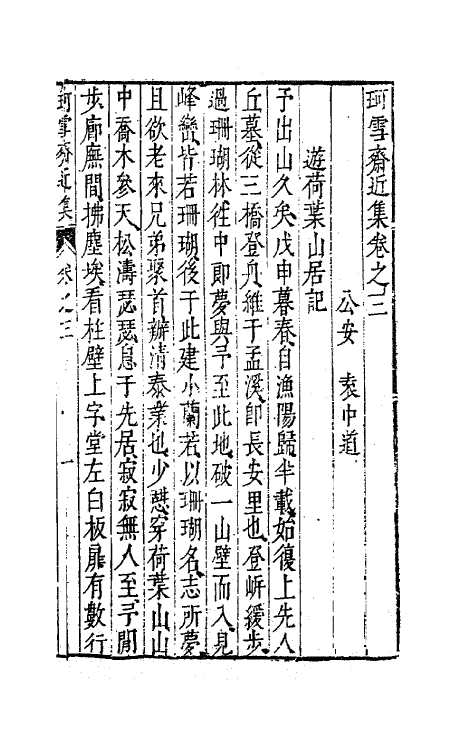 珂雪齋近集卷之三
公安　袁中道
遊荷葉山居記
予出山久矣戊申暮春自漁陽歸半載始復上先人
丘墓從三橋登舟維于孟溪即長安里也登岍緩步
過珊瑚林徃中郎夢與予至此地破一山壁而入見
峰巒皆若珊瑚後于此建小蘭若以珊瑚名志所夢
且欲老來兄弟聚首辦清泰業也少憩穿荷葉山山
中喬木參天松濤瑟瑟息于先居寂寂無人至予閒
步廊廡間拂塵埃看柱壁上字堂左白板扉有數行
珂雪齋近集　卷之三　一